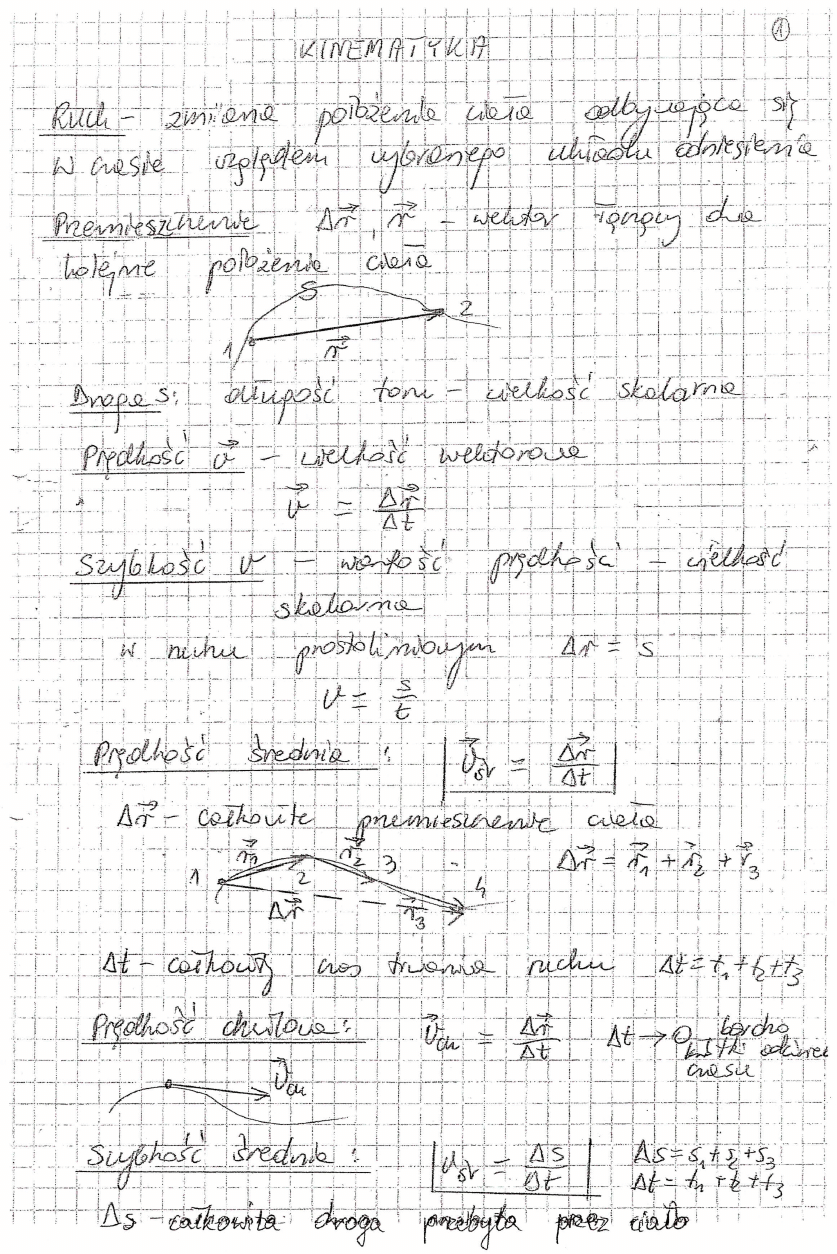 1
KINEMATYKA
Ruch - zmiana położenia ciała odbywająca się
w czasie względem wybranego układu odniesienia
Przemieszczenie Δr⃗, r⃗ - wektor łączący dwa
kolejne położenia ciała
S
1 2
r⃗
Droga s: długość toru - wielkość skalarna
Prędkość v⃗ - wielkość wektorowa
v⃗ = Δr⃗/Δt
Szybkość v - wartość prędkości - wielkość
skalarna
w ruchu prostoliniowym Δr = s
v = s/t
Prędkość średnia: v⃗śr = Δr⃗/Δt
Δr⃗ - całkowite przemieszczenie ciała
r⃗1 r⃗2 3 Δr⃗ = r⃗1 + r⃗2 + r⃗3
1 2 4
Δr⃗ r⃗3
Δt - całkowity czas trwania ruchu Δt = t1 + t2 + t3
Prędkość chwilowa: v⃗ch = Δr⃗/Δt Δt → 0, bardzo
krótki odcinek
czasu
v⃗ch
Szybkość średnia: vśr = Δs/Δt Δs = s1 + s2 + s3
Δt = t1 + t2 + t3
Δs - całkowita droga przebyta przez ciało